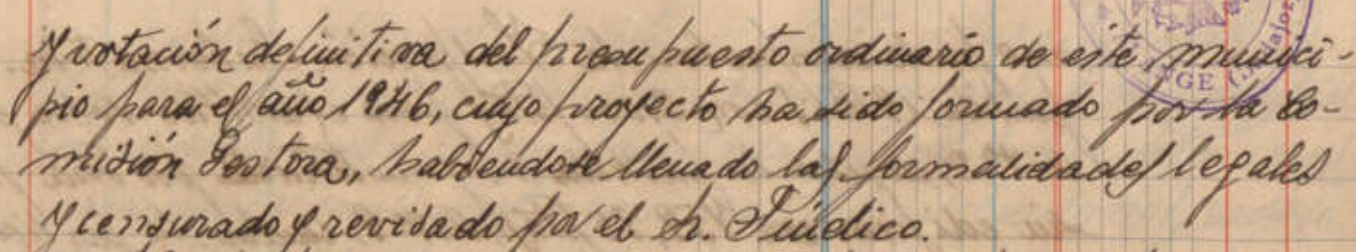 y votación definitiva del presupuesto ordinario de este munici-
pio para el año 1946, cuyo proyecto ha sido formado por la Co-
misión Gestora, habiendose llenado las formalidades legales
y censurado y revisado por el Sr. Síndico.